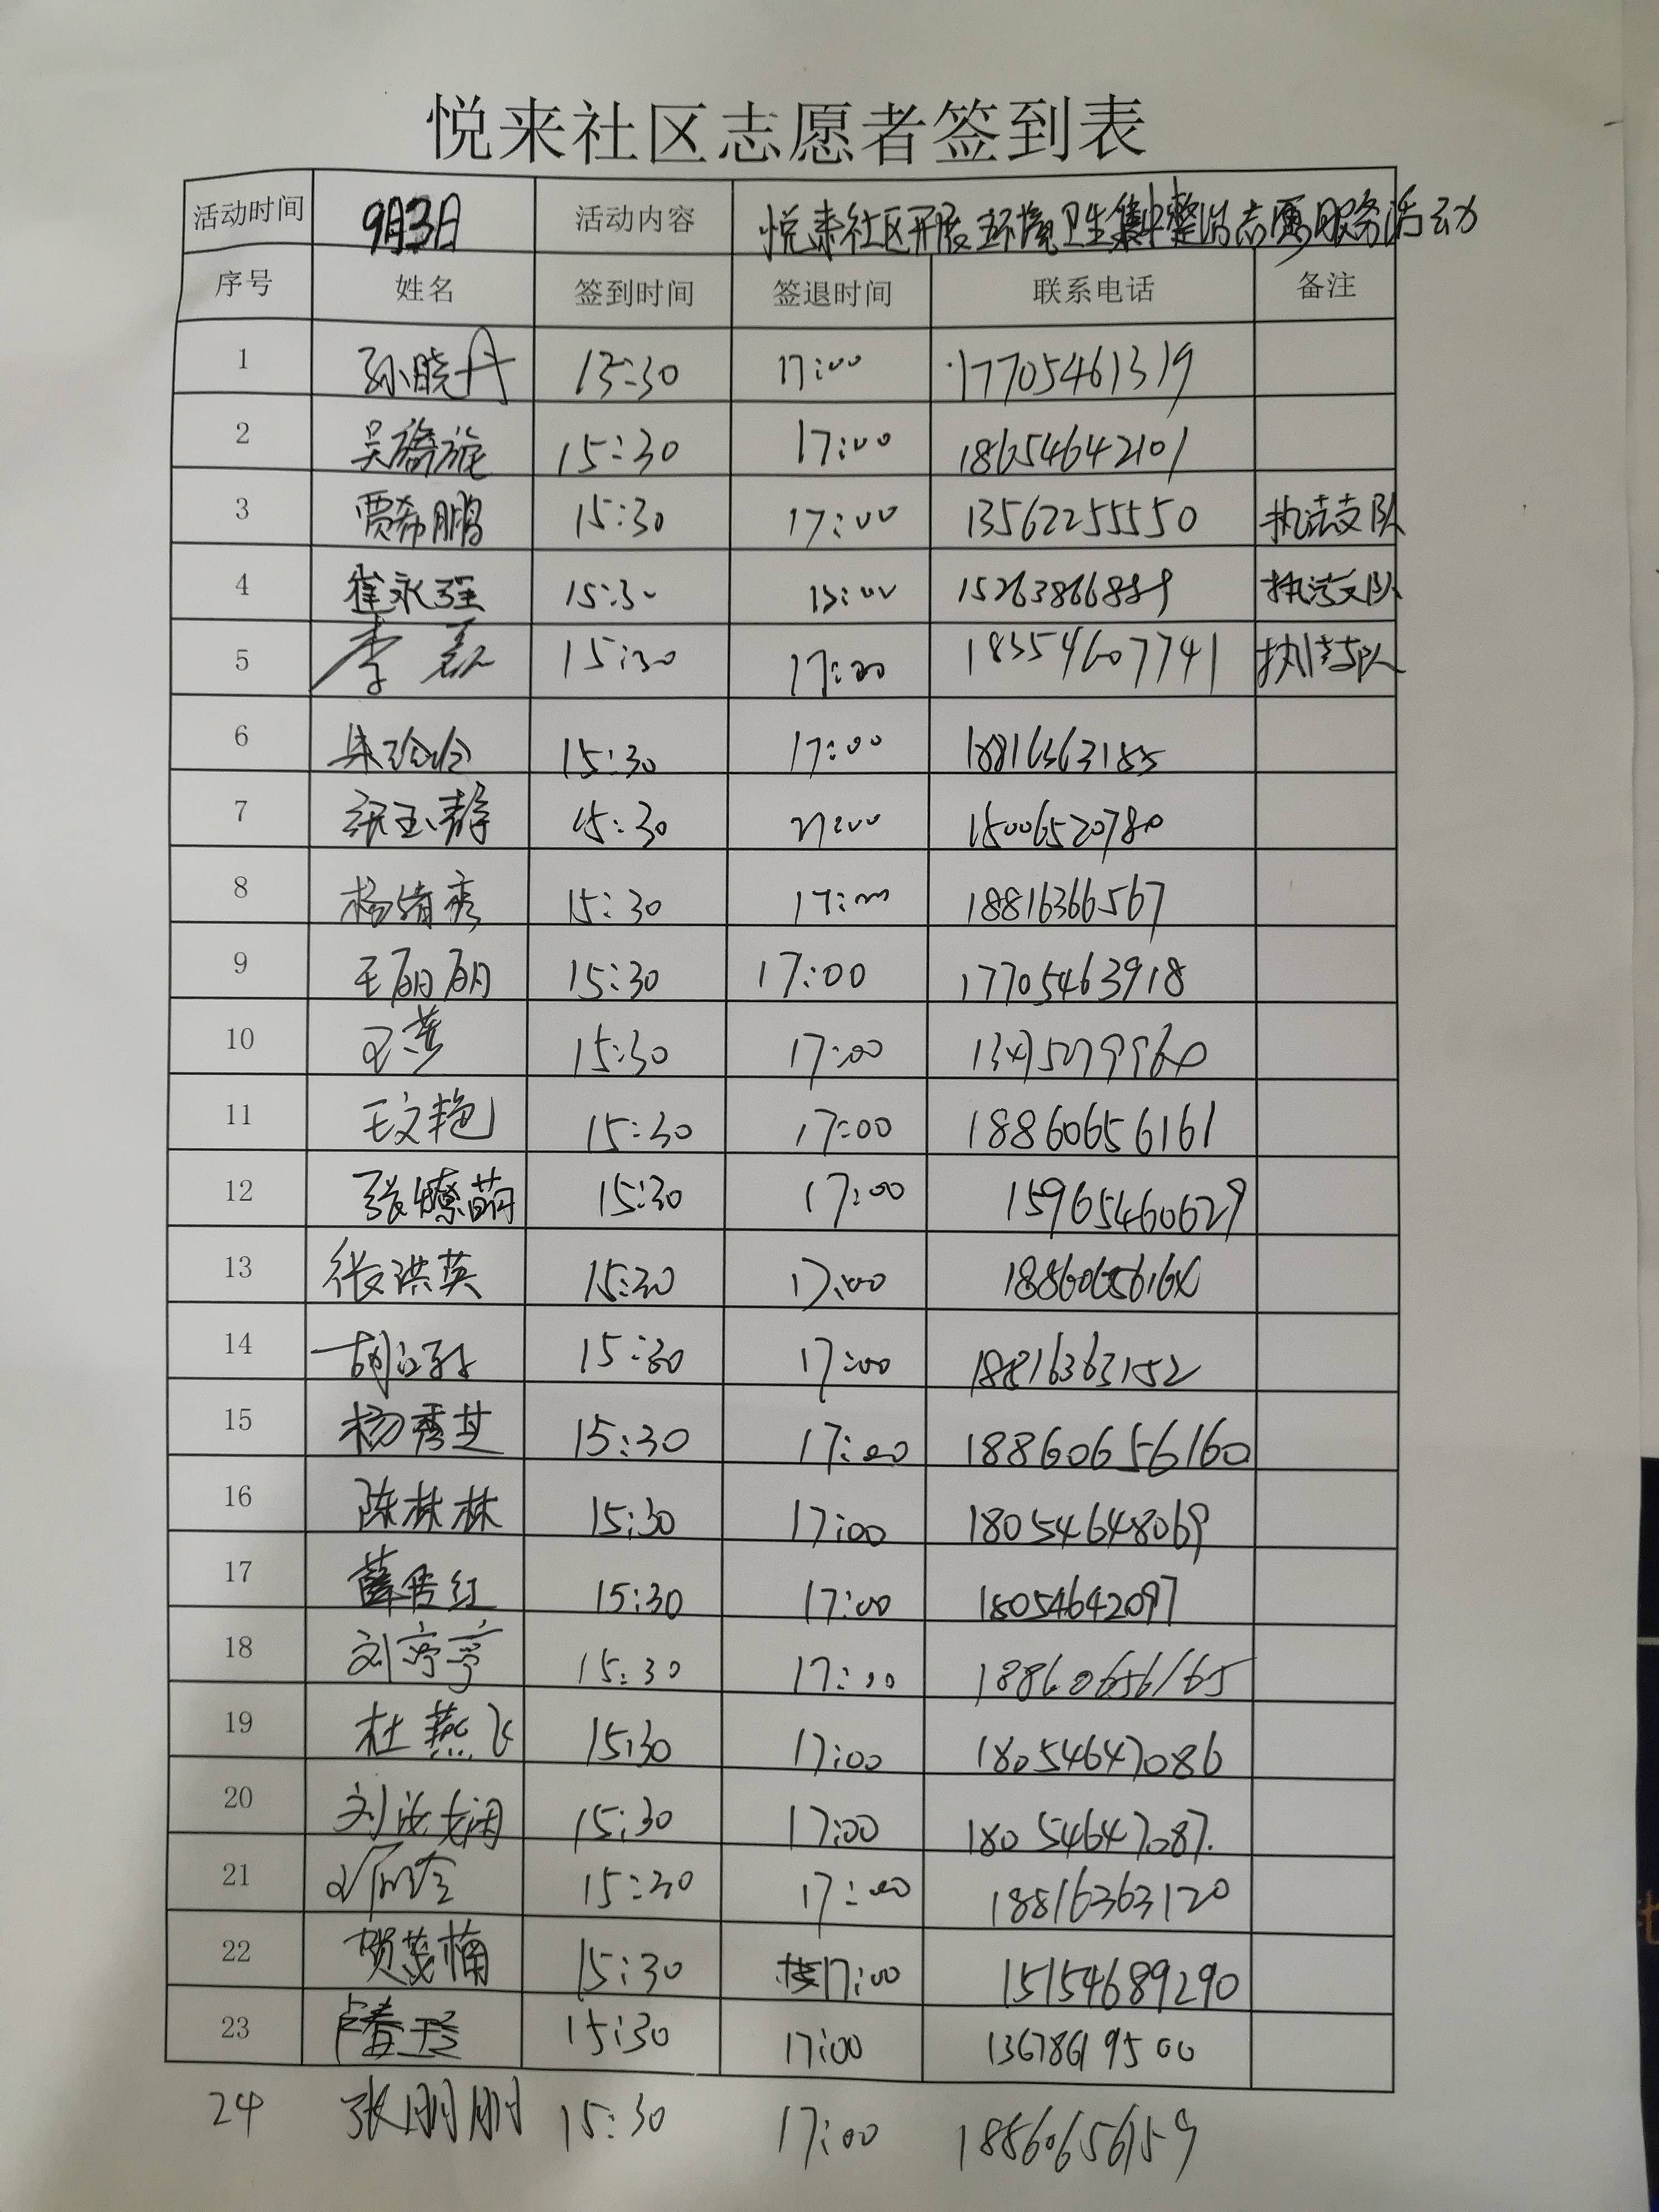 悦来社区志愿者签到表
活动时间 9月3日 活动内容 悦来社区开展环境卫生集中整治志愿服务活动
序号 姓名 签到时间 签退时间 联系电话 备注
1 孙晓丹 15:30 17:00 17705461319
2 吴 15:30 17:00 18654642101
3 贾希鹏 15:30 17:00 13562255550 执法支队
4 崔永强 15:30 执法支队
5 李磊 15:30 17:00 18354607741 执法支队
6 15:30 17:00 18816363185
7 张玉静 15:30 17:00 15006520780
8 杨倩秀 15:30 17:00 18816366567
9 王丽丽 15:30 17:00 17705463918
10 王燕 15:30 17:00
11 王文艳 15:30 17:00 18860656161
12 张燎萌 15:30 17:00 15965460629
13 张洪英 15:30 17:00
14 胡 15:30 17:00 18816363152
15 杨秀芝 15:30 17:00 18860656160
16 陈林林 15:30 17:00 18054648069
17 薛传红 15:30 17:00 18054642097
18 刘亭亭 15:30 17:00 18860656165
19 杜燕飞 15:30 17:00 18054647086
20 刘 15:30 17:00 18054647087
21 15:30 17:00 18816363120
22 贺茂楠 15:30 17:00 15154689290
23 卢春玉 15:30 17:00 13678619500
24 张刚刚 15:30 17:00 18860656159